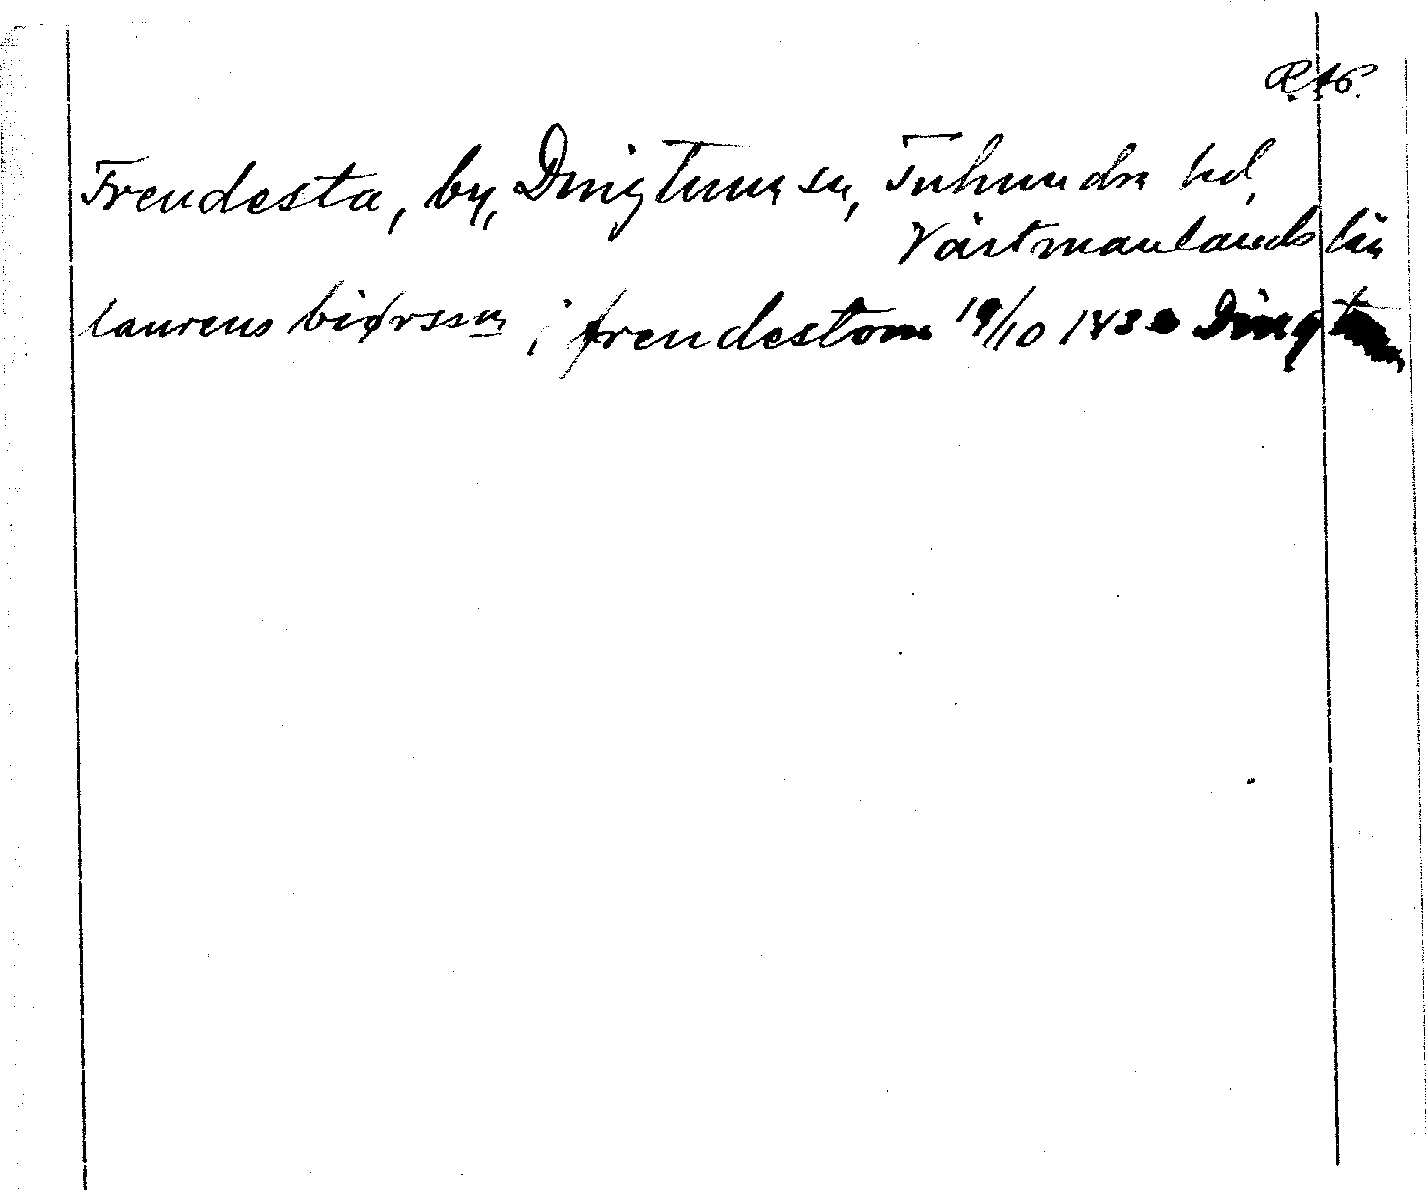 RAp.
Frendesta, by, Dingtuna sn, Tuhundra hd,
Västmanlands län
laurens biørsson i frendestom 19/10 143